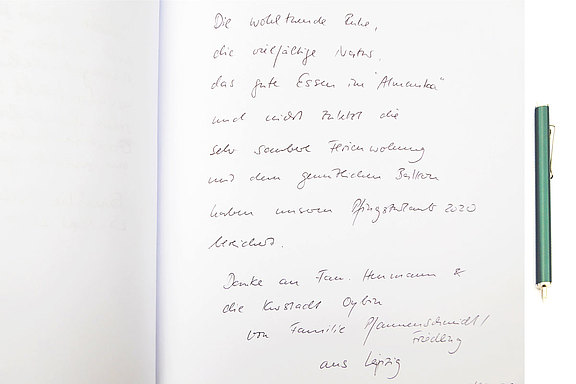 Die wohltuende Ruhe,
die vielfältige Natur,
das gute Essen im "Almenka"
und nicht zuletzt die
sehr saubere Ferienwohnung
mit dem gemütlichen Balkon
haben unseren Pfingsturlaub 2020
bereichert.
Danke an Fam. Hermann &
die Kurstadt Oybin
von Familie Pfannenschmidt /
Friedling
aus Leipzig